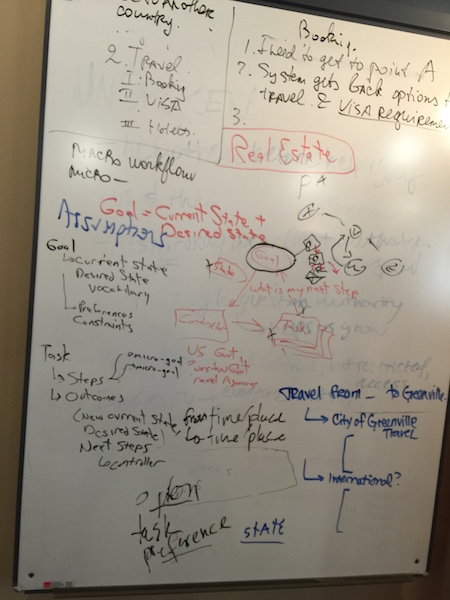 Another
country.
2. Travel
I: Booking
II VISA
III Hotels
Booking.
1. I need to get to point A
2. System gets back options
travel & VISA Requiremen
3.
Real Estate
Macro Workflow
Micro -
Goal = Current State +
Desired State
Assumptions
Goal
Goal
↳ current state
Desired State
Vocabulary
Preferences
Constraints
State
What is my next step
Controller
Task
micro-goal
micro-goal
↳ Steps
↳ Outcomes
US Gov't,
Travel Agencies
(New current State
Desired State)
Next Steps
↳ controller
from time/place
to time/place
Travel from _ to Greenville
↳ City of Greenville
Travel
↳ International?
option
task
preference
STATE